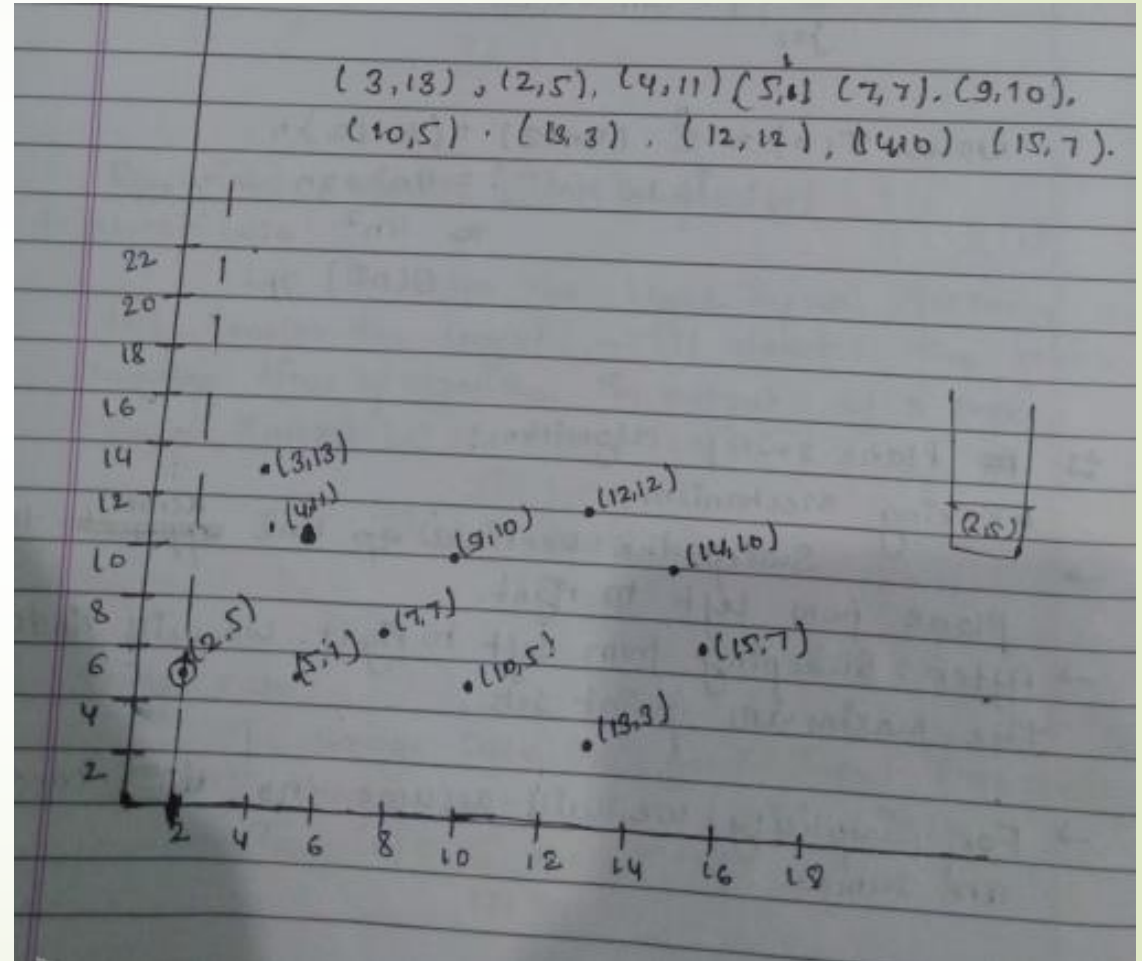 (3,13), (2,5), (4,11) (7,7). (9,10).
(10,5). (13,3). (12,12), (14,10) (15,7).
22
20
18
16
14
12
10
8
6
4
2
(3,13)
(4,11)
(12,12)
(9,10)
(14,10)
(2,5)
(7,7)
(10,5)
(15,7)
(13,3)
(2,5)
2 4 6 8 10 12 14 16 18